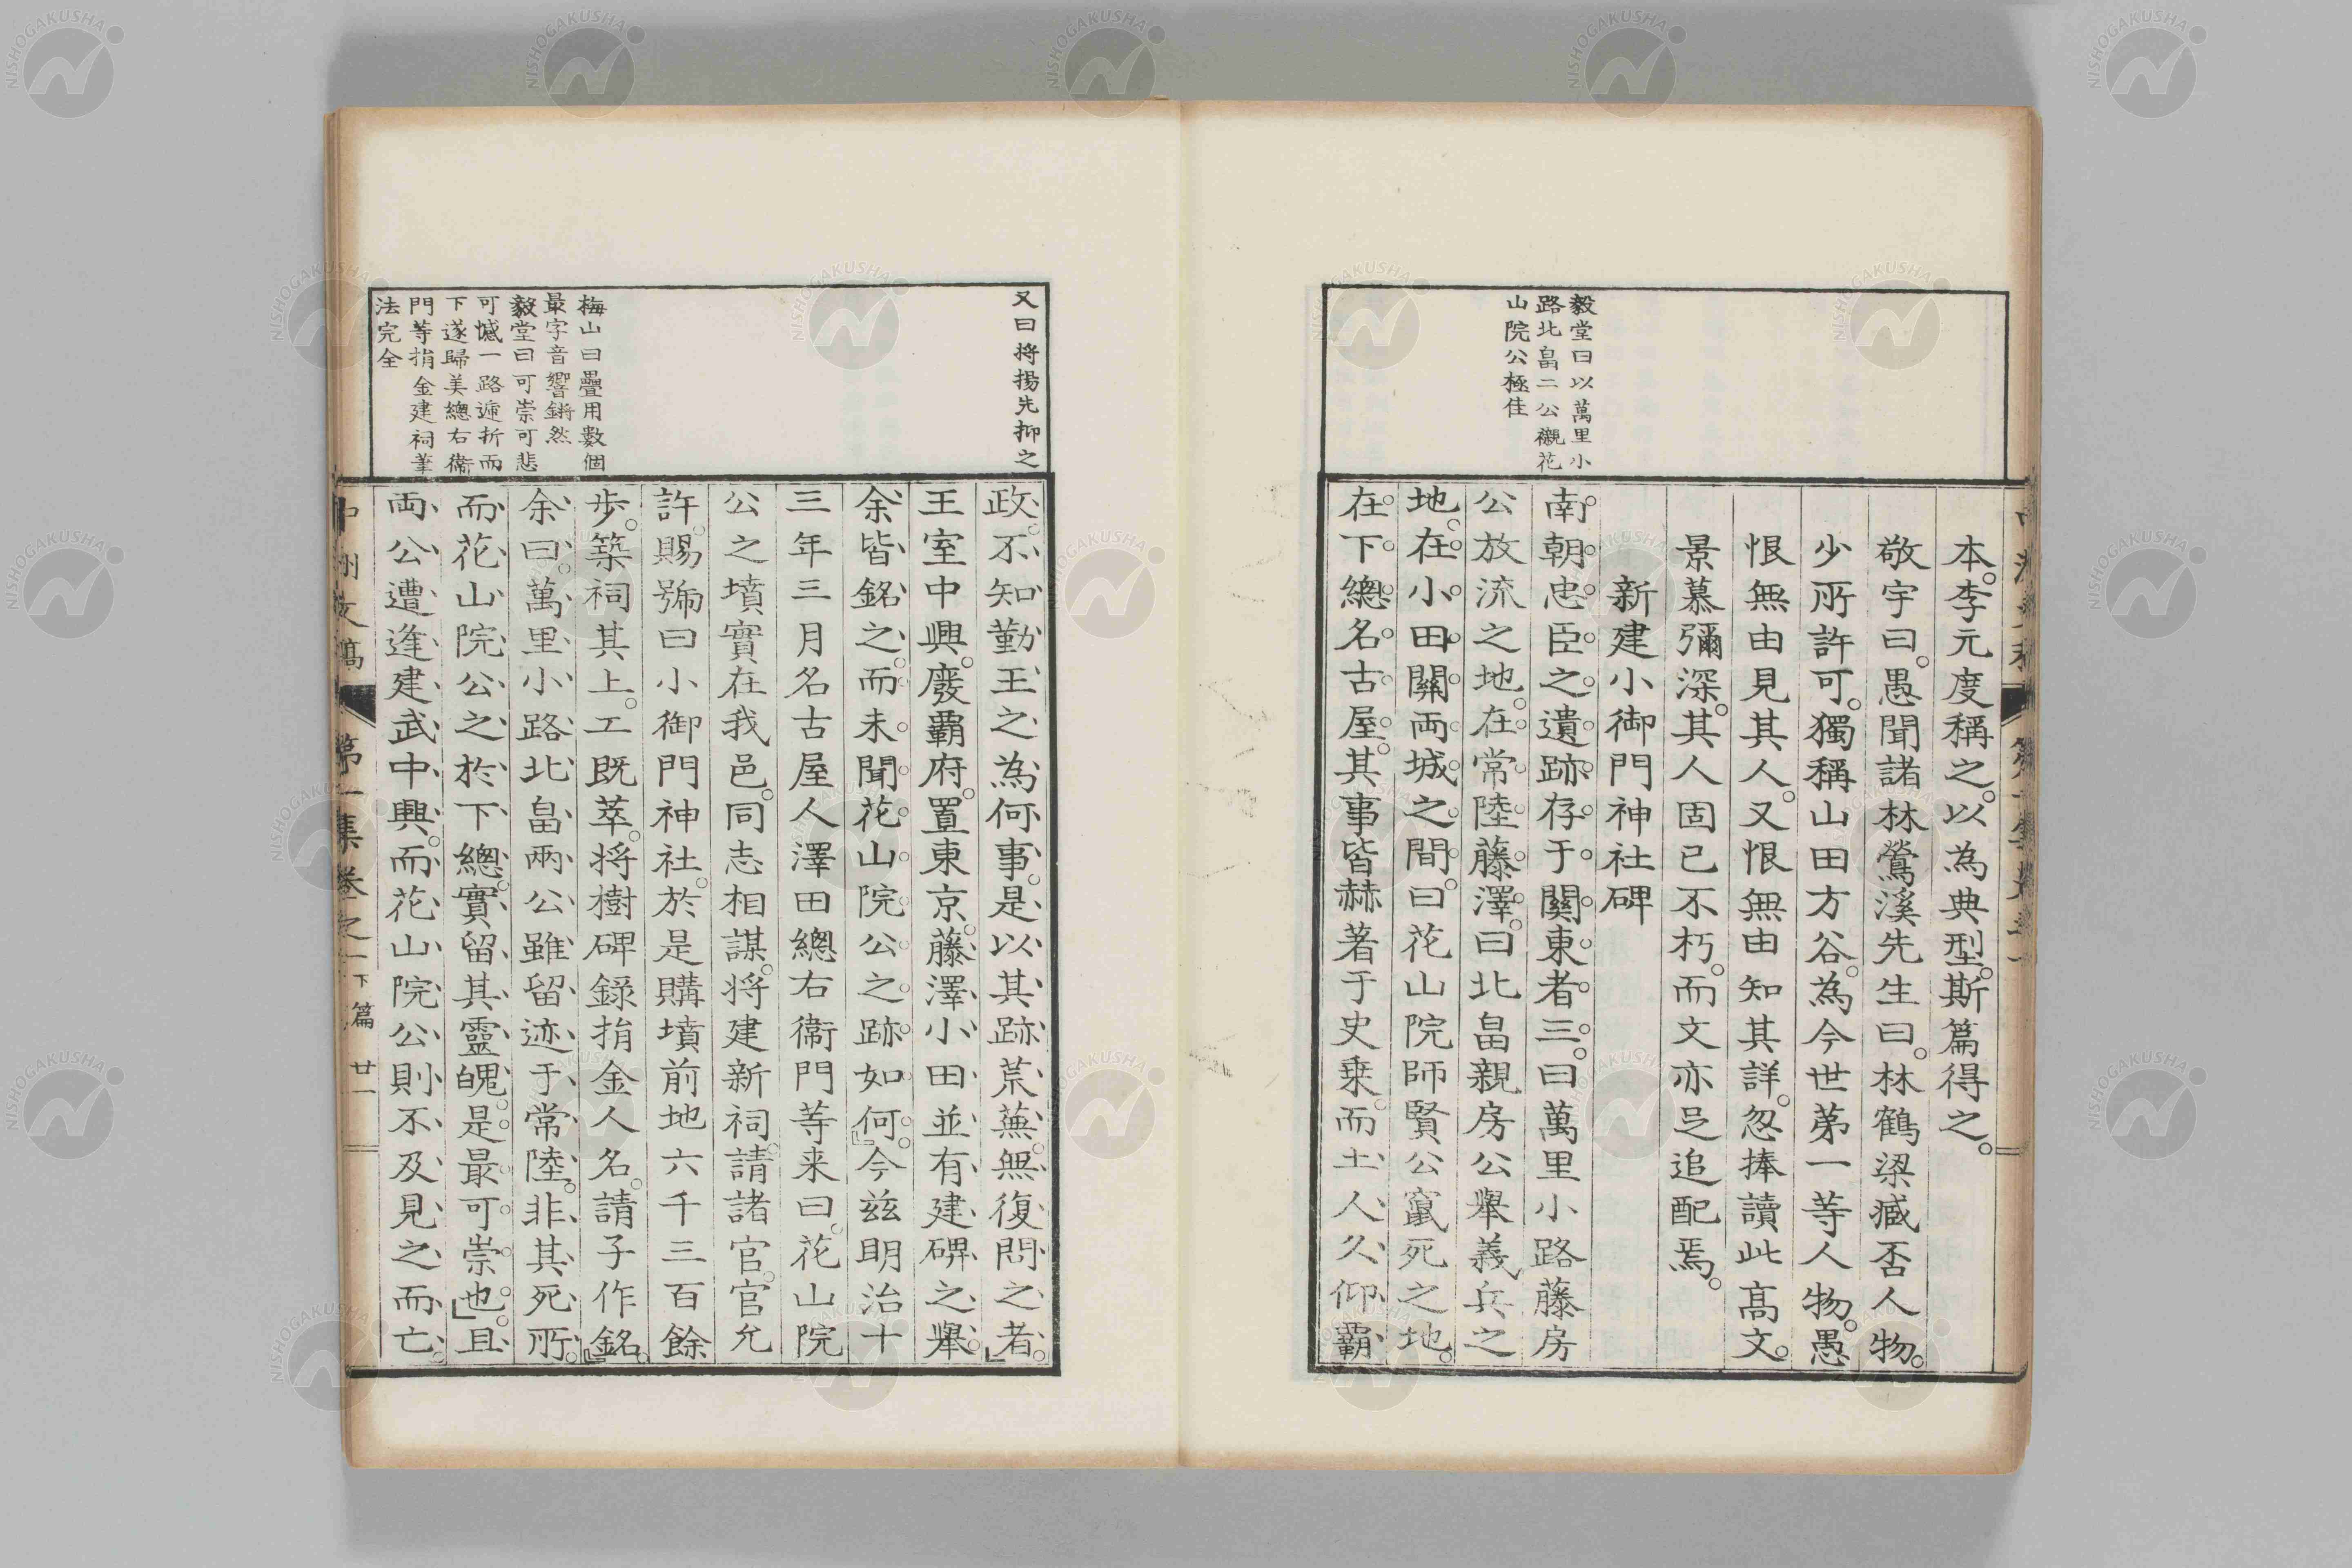 毅堂曰以萬里小
路北畠二公襯花
山院公極佳
本。李元度稱之。以為典型。斯篇得之。
敬宇曰。愚聞諸林鶯溪先生曰。林鶴梁臧否人物。
少所許可。獨稱山田方谷。為今世苐一等人物。愚
恨無由見其人。又恨無由知其詳。忽捧讀此高文。
景慕彌深。其人固已不朽。而文亦足追配焉。
新建小御門神社碑
南朝忠臣之遺跡存于關東者三。曰萬里小路藤房
公放流之地。在常陸藤澤。曰北畠親房公擧義兵之
地。在小田關両城之間。曰花山院師賢公竄死之地。
在下總名古屋。其事皆赫著于史乗。而土人久仰覇
又曰將揚先抑之
梅山曰疊用數個
最字音響鏘然
毅堂曰可崇可悲
可憾一路遞折而
下遂歸美總右衞
門等捐金建祠筆
法完全
政。不知勤王之為何事。是以其跡荒蕪。無復問之者。
王室中興。廢覇府。置東京。藤澤小田並有建碑之擧。
余皆銘之。而未聞花山院公之跡如何。今兹明治十
三年三月名古屋人澤田總右衞門等来曰。花山院
公之墳實在我邑。同志相謀。将建新祠。請諸官。官允
許。賜號曰小御門神社。於是購墳前地六千三百餘
步。築祠其上。工既萃。将樹碑錄捐金人名。請子作銘。
余曰。萬里小路北畠兩公雖留迹于常陸。非其死所。
而花山院公之於下總。實留其靈魄。是最可崇也。且
両公遭逢建武中興。而花山院公則不及見之而亡。
中洲文稿 第一集卷之一 下篇 廿一